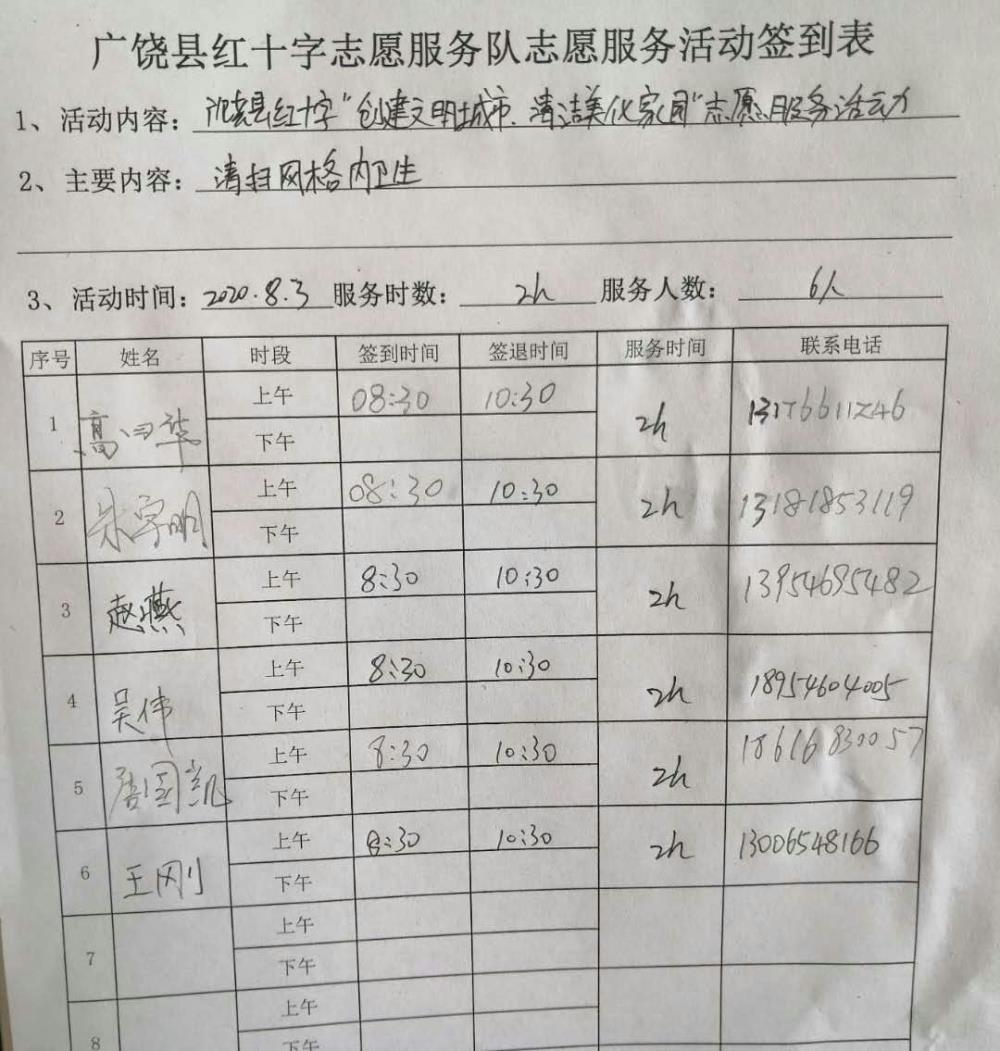 广饶县红十字志愿服务队志愿服务活动签到表
1、活动内容：广饶县红十字“创建文明城市、清洁美化家园”志愿服务活动
2、主要内容：清扫网格内卫生
3、活动时间：2020.8.3 服务时数：2h 服务人数：6人
序号 姓名 时段 签到时间 签退时间 服务时间 联系电话
1 高 华 上午 08:30 10:30 2h 13176611246
下午
2 宋字明 上午 08:30 10:30 2h 13181853119
下午
3 赵燕 上午 8:30 10:30 2h 13954695482
下午
4 吴伟 上午 8:30 10:30 2h 18954604005
下午
5 唐国凯 上午 8:30 10:30 2h 18616830057
下午
6 王刚 上午 8:30 10:30 2h 13006548166
下午
7 上午
下午
8 上午
下午